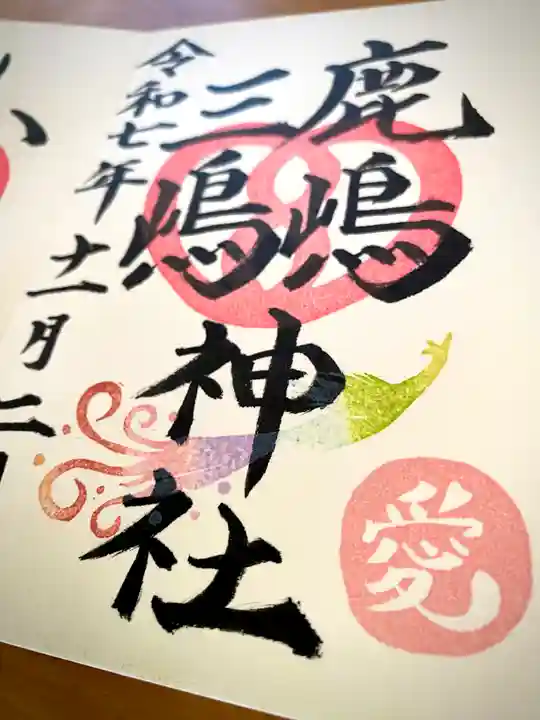 鹿嶋
三嶋
神社
令和七年十一月二
愛